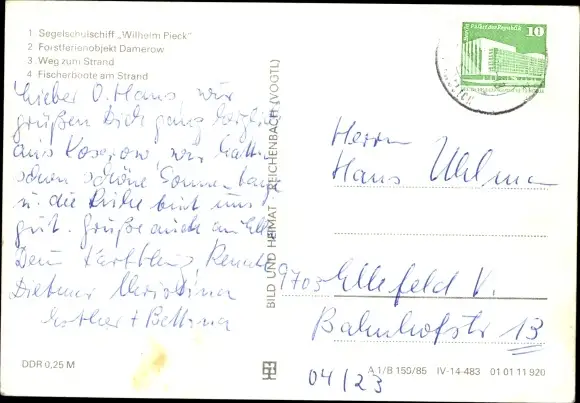 1 Segelschulschiff „Wilhelm Pieck"
2 Forstferienobjekt Damerow
3 Weg zum Strand
4 Fischerboote am Strand
Lieber O. Hans, wir
grüßen Dich ganz herzlich
aus Koserow, wir hatten
schon schöne Sonnentage
u. die Ruhe tut uns
gut. Grüße auch an Elli
Dein Karl-Heinz, Renate
Dietmar Christina
Esther + Bettina
DDR 0,25 M
BILD UND HEIMAT REICHENBACH (VOGTL)
10
Herrn
Hans Uhlmann
9703 Ellefeld V.
Bahnhofstr 13
04/23
A 1/B 159/85 IV-14-483 01 01 11 920